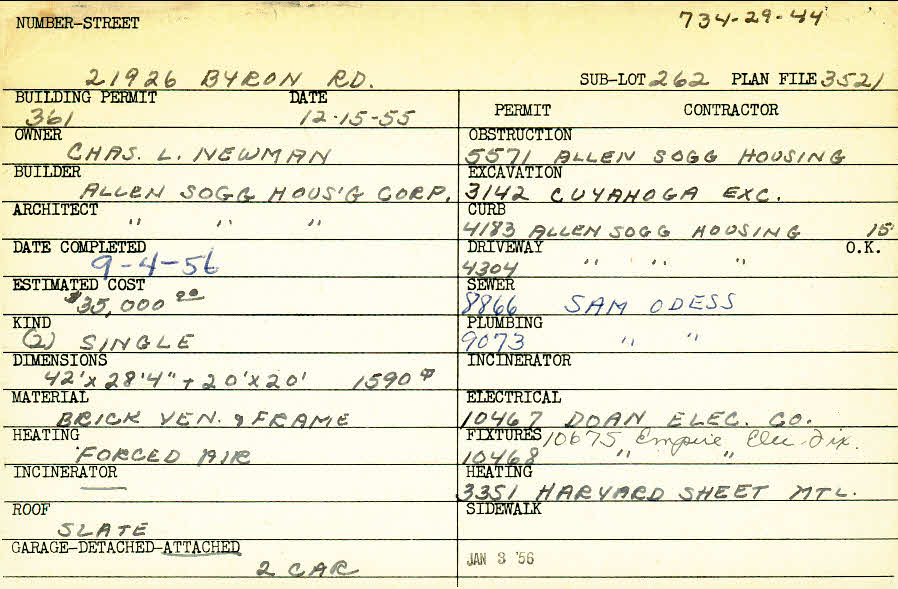 NUMBER-STREET 734-29-44
21926 BYRON RD. SUB-LOT 262 PLAN FILE 3521
BUILDING PERMIT DATE
361 12-15-55
OWNER
CHAS. L. NEWMAN
BUILDER
ALLEN SOGG HOUS'G CORP.
ARCHITECT
" " "
DATE COMPLETED
9-4-56
ESTIMATED COST
$35,000 00
KIND
(2) SINGLE
DIMENSIONS
42'x 28'4" + 20'x20' 1590
MATERIAL
BRICK VEN. & FRAME
HEATING
FORCED AIR
INCINERATOR
—
ROOF
SLATE
GARAGE-DETACHED-ATTACHED
2 CAR
PERMIT CONTRACTOR
OBSTRUCTION
5571 ALLEN SOGG HOUSING
EXCAVATION
3142 CUYAHOGA EXC.
CURB
4183 ALLEN SOGG HOUSING 15'
DRIVEWAY O.K.
4304 " " "
SEWER
8866 SAM ODESS
PLUMBING
9073 " "
INCINERATOR
ELECTRICAL
10467 DOAN ELEC. CO.
FIXTURES 10675 Empire Elec Fix.
10468 " "
HEATING
3351 HARVARD SHEET MTL.
SIDEWALK
JAN 3 '56